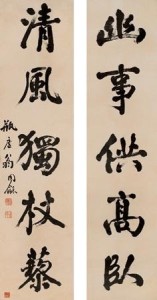 幽事供高臥
清風獨杖藜
瓶廬翁同龢